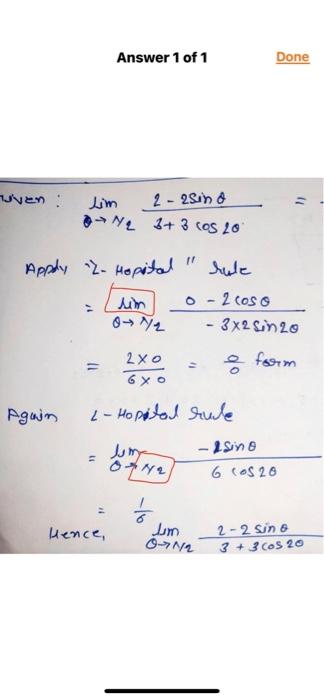 Answer 1 of 1
Done
Given : lim θ→π/2 2 - 2sinθ / 3 + 3 cos 2θ =
Apply "L-Hopital" rule
= lim θ→π/2 0 - 2 cosθ / - 3×2 sin2θ
= 2×0 / 6×0 = 0/0 form
Again L-Hopital rule
= lim θ→π/2 - 2sinθ / 6 cos2θ
= 1/6
Hence, lim θ→π/2 2 - 2 sinθ / 3 + 3 cos 2θ